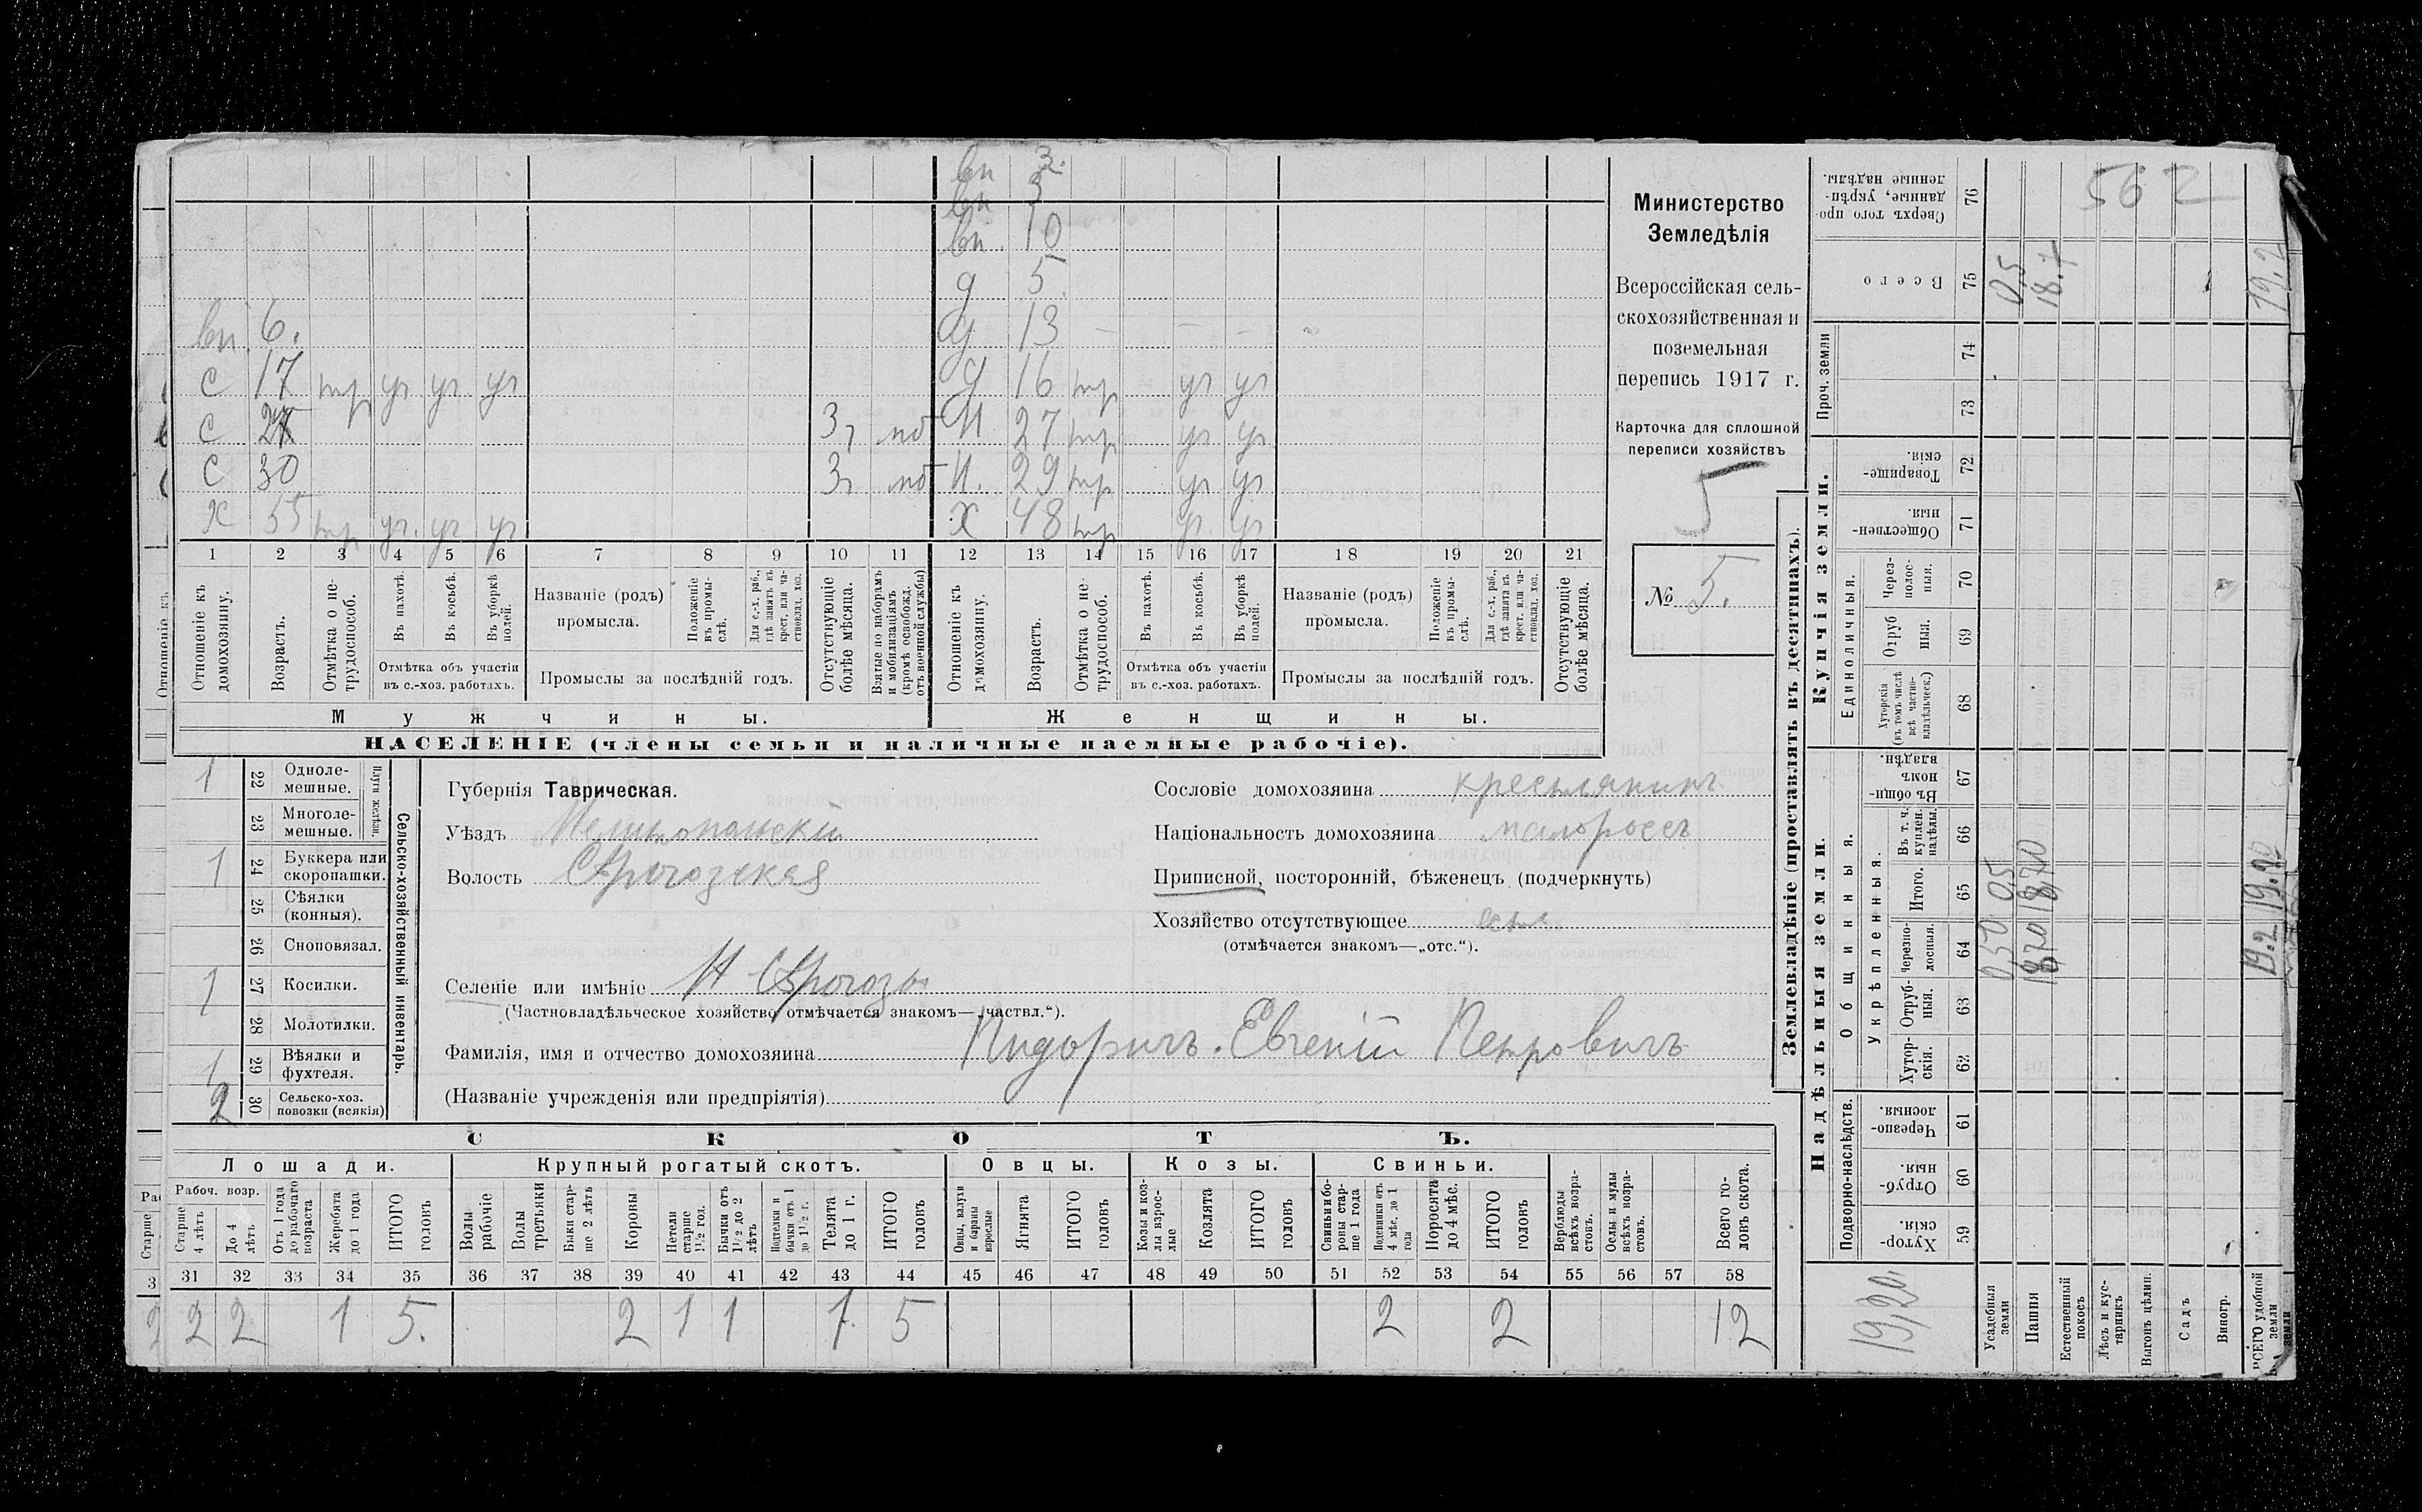 вн 3.
вн 3
вн. 10
д 5.
вн. 6. д 13 — — —
с 17 тр уч уч. уч д 16 тр уч уч
с 3 мб Н 27 тр уч уч
с 30 3 мб Н. 29 тр уч уч
х 55 тр уч. уч уч х 48 тр уч. уч
1 2 3 4 5 6 7 8 9 10 11 12 13 14 15 16 17 18 19 20 21
Отношеніе къ домохозяину.
Возрастъ.
Отмѣтка о не-трудоспособ.
Въ пахотѣ.
Въ косьбѣ.
Въ уборкѣ полей.
Отмѣтка объ участіи
въ с.-хоз. работахъ.
Названіе (родъ)
промысла.
Положеніе въ промы-слѣ.
Для с.-х. раб., гдѣ занятъ въ крест. или ча-стновлад. хоз.
Промыслы за послѣдній годъ.
Отсутствующіе болѣе мѣсяца.
Взятые по наборамъ и мобилизаціямъ (кромѣ освобожд. отъ военной службы)
Отношеніе къ домохозяину.
Возрастъ.
Отмѣтка о не-трудоспособ.
Въ пахотѣ.
Въ косьбѣ.
Въ уборкѣ полей.
Отмѣтка объ участіи
въ с.-хоз. работахъ.
Названіе (родъ)
промысла.
Положеніе въ промы-слѣ.
Для с.-х. раб., гдѣ занята въ крест. или ча-стновлад. хоз.
Промыслы за послѣдній годъ.
Отсутствующіе болѣе мѣсяца.
Мужчины. Женщины.
НАСЕЛЕНІЕ (члены семьи и наличные наемные рабочіе).
Министерство
Земледѣлія
Всероссійская сель-
скохозяйственная и
поземельная
перепись 1917 г.
Карточка для сплошной
переписи хозяйствъ
5
№ 5.
Сельско-хозяйственный инвентарь.
Плуги желѣзн.
1 22 Одноле-мешные.
23 Многоле-мешные.
1 24 Буккера или скоропашки.
25 Сѣялки (конныя).
26 Сноповязал.
1 27 Косилки.
28 Молотилки.
1 29 Вѣялки и фухтеля.
2 30 Сельско-хоз. повозки (всякія)
Губернія Таврическая.
Уѣздъ Мелитопольскій
Волость Сѣрогозская
Селеніе или имѣніе Н Сѣрогозы
(Частновладѣльческое хозяйство отмѣчается знакомъ—„частвл.“).
Сословіе домохозяина крестьянинъ
Національность домохозяина малороссъ
Приписной, посторонній, бѣженецъ (подчеркнуть)
Хозяйство отсутствующее
(отмѣчается знакомъ—„отс.“).
Фамилія, имя и отчество домохозяина Пидоричъ. Евгеній Петровичъ
(Названіе учрежденія или предпріятія)
СКОТЪ.
Лошади. Крупный рогатый скотъ. Овцы. Козы. Свиньи.
Рабоч. возр.
Старше 4 лѣтъ
До 4 лѣтъ
Отъ 1 года до рабочаго возраста
Жеребята до 1 года
ИТОГО головъ
Волы рабочіе
Волы третьяки
Быки стар-ше 2 лѣтъ
Коровы
Нетели старше 1½ год.
Бычки отъ 1½ до 2 лѣтъ
Подтелки и бычки отъ 1 до 1½ г.
Телята до 1 г.
ИТОГО головъ
Овцы, валухи и бараны взрослые
Ягнята
ИТОГО головъ
Козы и коз-лы взрос-лые
Козлята
ИТОГО головъ
Свиньи и бо-ровы стар-ше 1 года
Подсвинки отъ 4 мѣс. до 1 года
Поросята до 4 мѣс.
ИТОГО головъ
Верблюды всѣхъ возра-стовъ.
Ослы и мулы всѣхъ возра-стовъ.
Всего го-ловъ скота.
31 32 33 34 35 36 37 38 39 40 41 42 43 44 45 46 47 48 49 50 51 52 53 54 55 56 57 58
2 2 1 5. 2 1 1 1 5 2 2 12
Землевладѣніе (проставлять въ десятинахъ).
Сверхъ того про-данные, укрѣп-ленные надѣлы. 76 562
Всего 75 0,5 18.7 19,2
Купчія земли.
Проч. земли 74
73
Товарище-скія. 72
Обществен-ныя. 71
Единоличныя.
Через-полос-ныя. 70
Отруб ныя. 69
Хуторскія (въ томъ числѣ всѣ частно-владѣльческ.) 68
Надѣльныя земли.
Общинныя.
Въ общи-номъ владѣн. 67
Укрѣпленныя.
Въ т. ч. куплен. надѣлы. 66
Итого. 65 0,5 18,70
Черезпо-лосныя. 64 0,50 18,70 19.2
Отруб-ныя. 63
Хутор-скія. 62
Подворно-наслѣдств.
Черезпо-лосныя. 61
Отруб-ныя. 60
Хутор-скія. 59
19,20.
Усадебныя земли
Пашня
Естественный покосъ
Лѣсъ и кус-тарникъ
Выгонъ цѣлин.
Садъ
Виногр.
ВСЕГО удобной земли